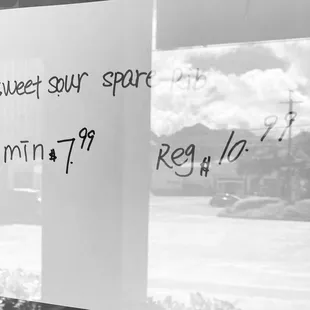 sweet sour spare Rib
min $7.99 Reg $10.99